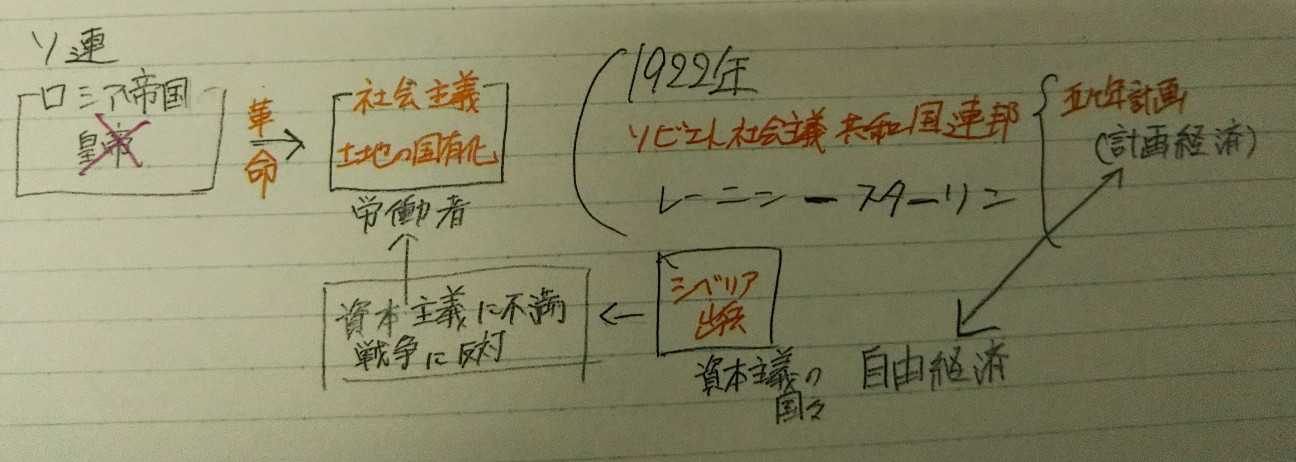 ソ連
ロシア帝国
皇帝
革
命
社会主義
土地の国有化
労働者
1922年
ソビエト社会主義共和国連邦
レーニン ー スターリン
五ヶ年計画
(計画経済)
シベリア
出兵
資本主義に不満
戦争に反対
資本主義の
国々
自由経済